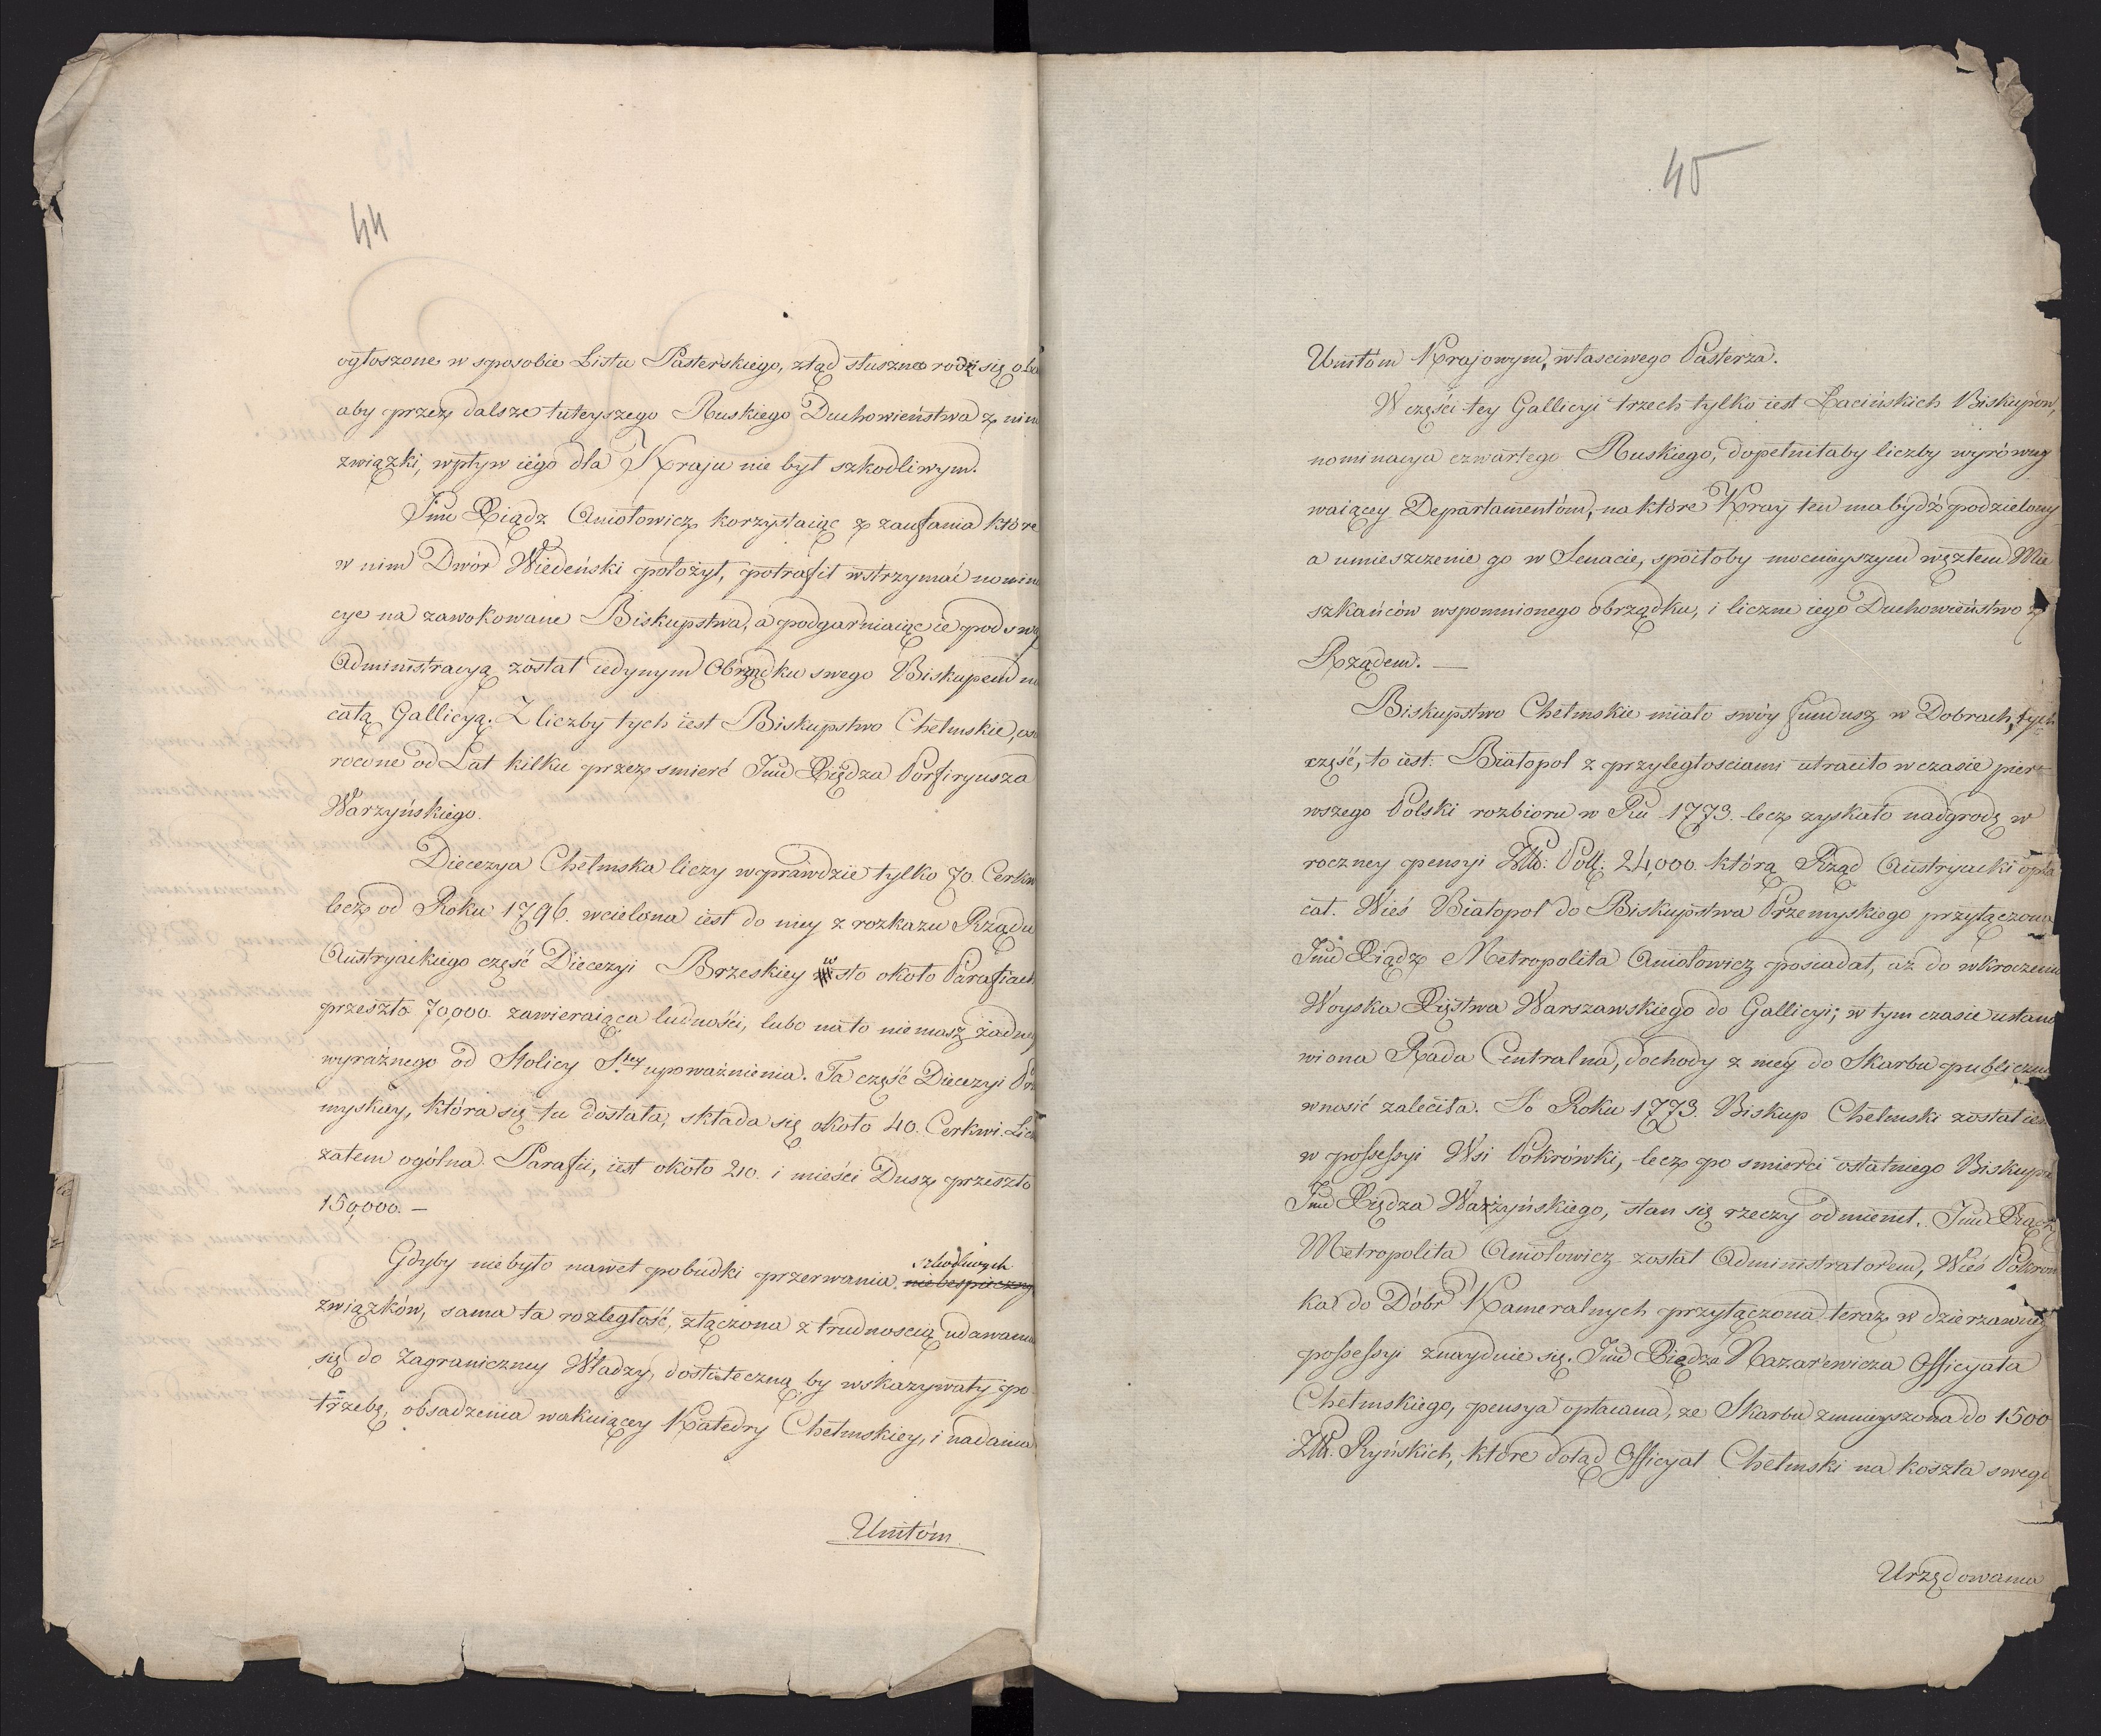 44
ogłoszone w sposobie Listu Pasterskiego, ztąd słuszne rodzi się
aby przez dalsze tuteyszego Ruskiego Duchowieństwa z nim
związki, wpływ iego dla Kraju nie był szkodliwym.
Jmć Xiądz Aniołowicz korzystaiąc z zaufania które
w nim Dwór Wiedeński położył, potrafił wstrzymać nomin
cye na zawokowane Biskupstwa, a podgarniaiąc ie pod swą
Administracyą został iedynym Obrządku swego Biskupem na
całą Gallicyą. Z liczby tych iest Biskupstwo Chełmskie, osi
rocone od Lat kilku przez smierć Jmć Xiędza Porfiryusza
Warzyńskiego.
Diecezya Chełmska liczy wprawdzie tylko 70. Cerkw
lecz od Roku 1796. wcielona iest do niey z rozkazu Rządu
Austryackiego część Diecezyi Brzeskiey w sto około Parafiach
przeszło 70,000. zawieraiąca ludności, lubo na to niemasz żadneg
wyraźnego od Stolicy S.tey upoważnienia. Ta część Diecezyi Prze
myskiey, która się tu dostała, składa się około 40. Cerkwi. Licz
zatem ogólna Parafii, iest około 210. i mieści Dusz przeszło
150,000. —
Gdyby niebyło nawet pobudki przerwania szkodliwych niebespieczny
związków, sama ta rozległość, złączona z trudnoscią udawania
się do Zagraniczney Władzy, dostateczną by wskazywały po-
trzebę, obsadzenia wakuiącey Katedry Chełmskiey, i nadania
Unitóm
45
Unitóm Krajowym, własciwego Pasterza.
W części tey Gallicyi trzech tylko iest Łacińskich Biskupów,
nominacya czwartego Ruskiego, dopełniłaby liczby wyrówny
waiącey Departamentóm, na które Kray ten ma bydź podzielony
a umieszczenie go w Senacie, spoiłoby mocnieyszym węzłem Mie
szkańców wspomnionego obrządku, i liczne iego Duchowieństwo z
Rządem. —
Biskupstwo Chełmskie miało swóy fundusz w Dobrach, tych
część, to iest: Białopol z przyległosciami utraciło w czasie pier-
wszego Polski rozbioru w Ru 1773. lecz zyskało nadgrodę w
roczney pensyi Złł: Poll: 24,000. którą Rząd Austryacki opła
cał. Wieś Białopol do Biskupstwa Przemyskiego przyłączoną
Jmć Xiądz Metropolita Aniołowicz posiadał, aż do wkroczenia
Woyska Xięstwa Warszawskiego do Gallicyi; w tym czasie ustano
wiona Rada Centralna, dochody z niey do Skarbu publiczne
wnosić zaleciła. Po Roku 1773. Biskup Chełmski został ies
w possessyi Wsi Pokrówki, lecz po smierci ostatniego Biskupa
Jmć Xiędza Warzyńskiego, stan się rzeczy odmienił. Jmć Xiądz
Metropolita Aniołowicz został Administratorem, Wieś Pokrów
ka do Dóbr Kameralnych przyłączona teraz w dzierzawney
possessyi znayduie się. Jmć Xiędza Nazarewicza Officyała
Chełmskiego, pensya opłacana, ze Skarbu zmnieyszona do 1500
Złł. Ryńskich, które dotąd Officyał Chełmski na koszta swego
Urzędowania